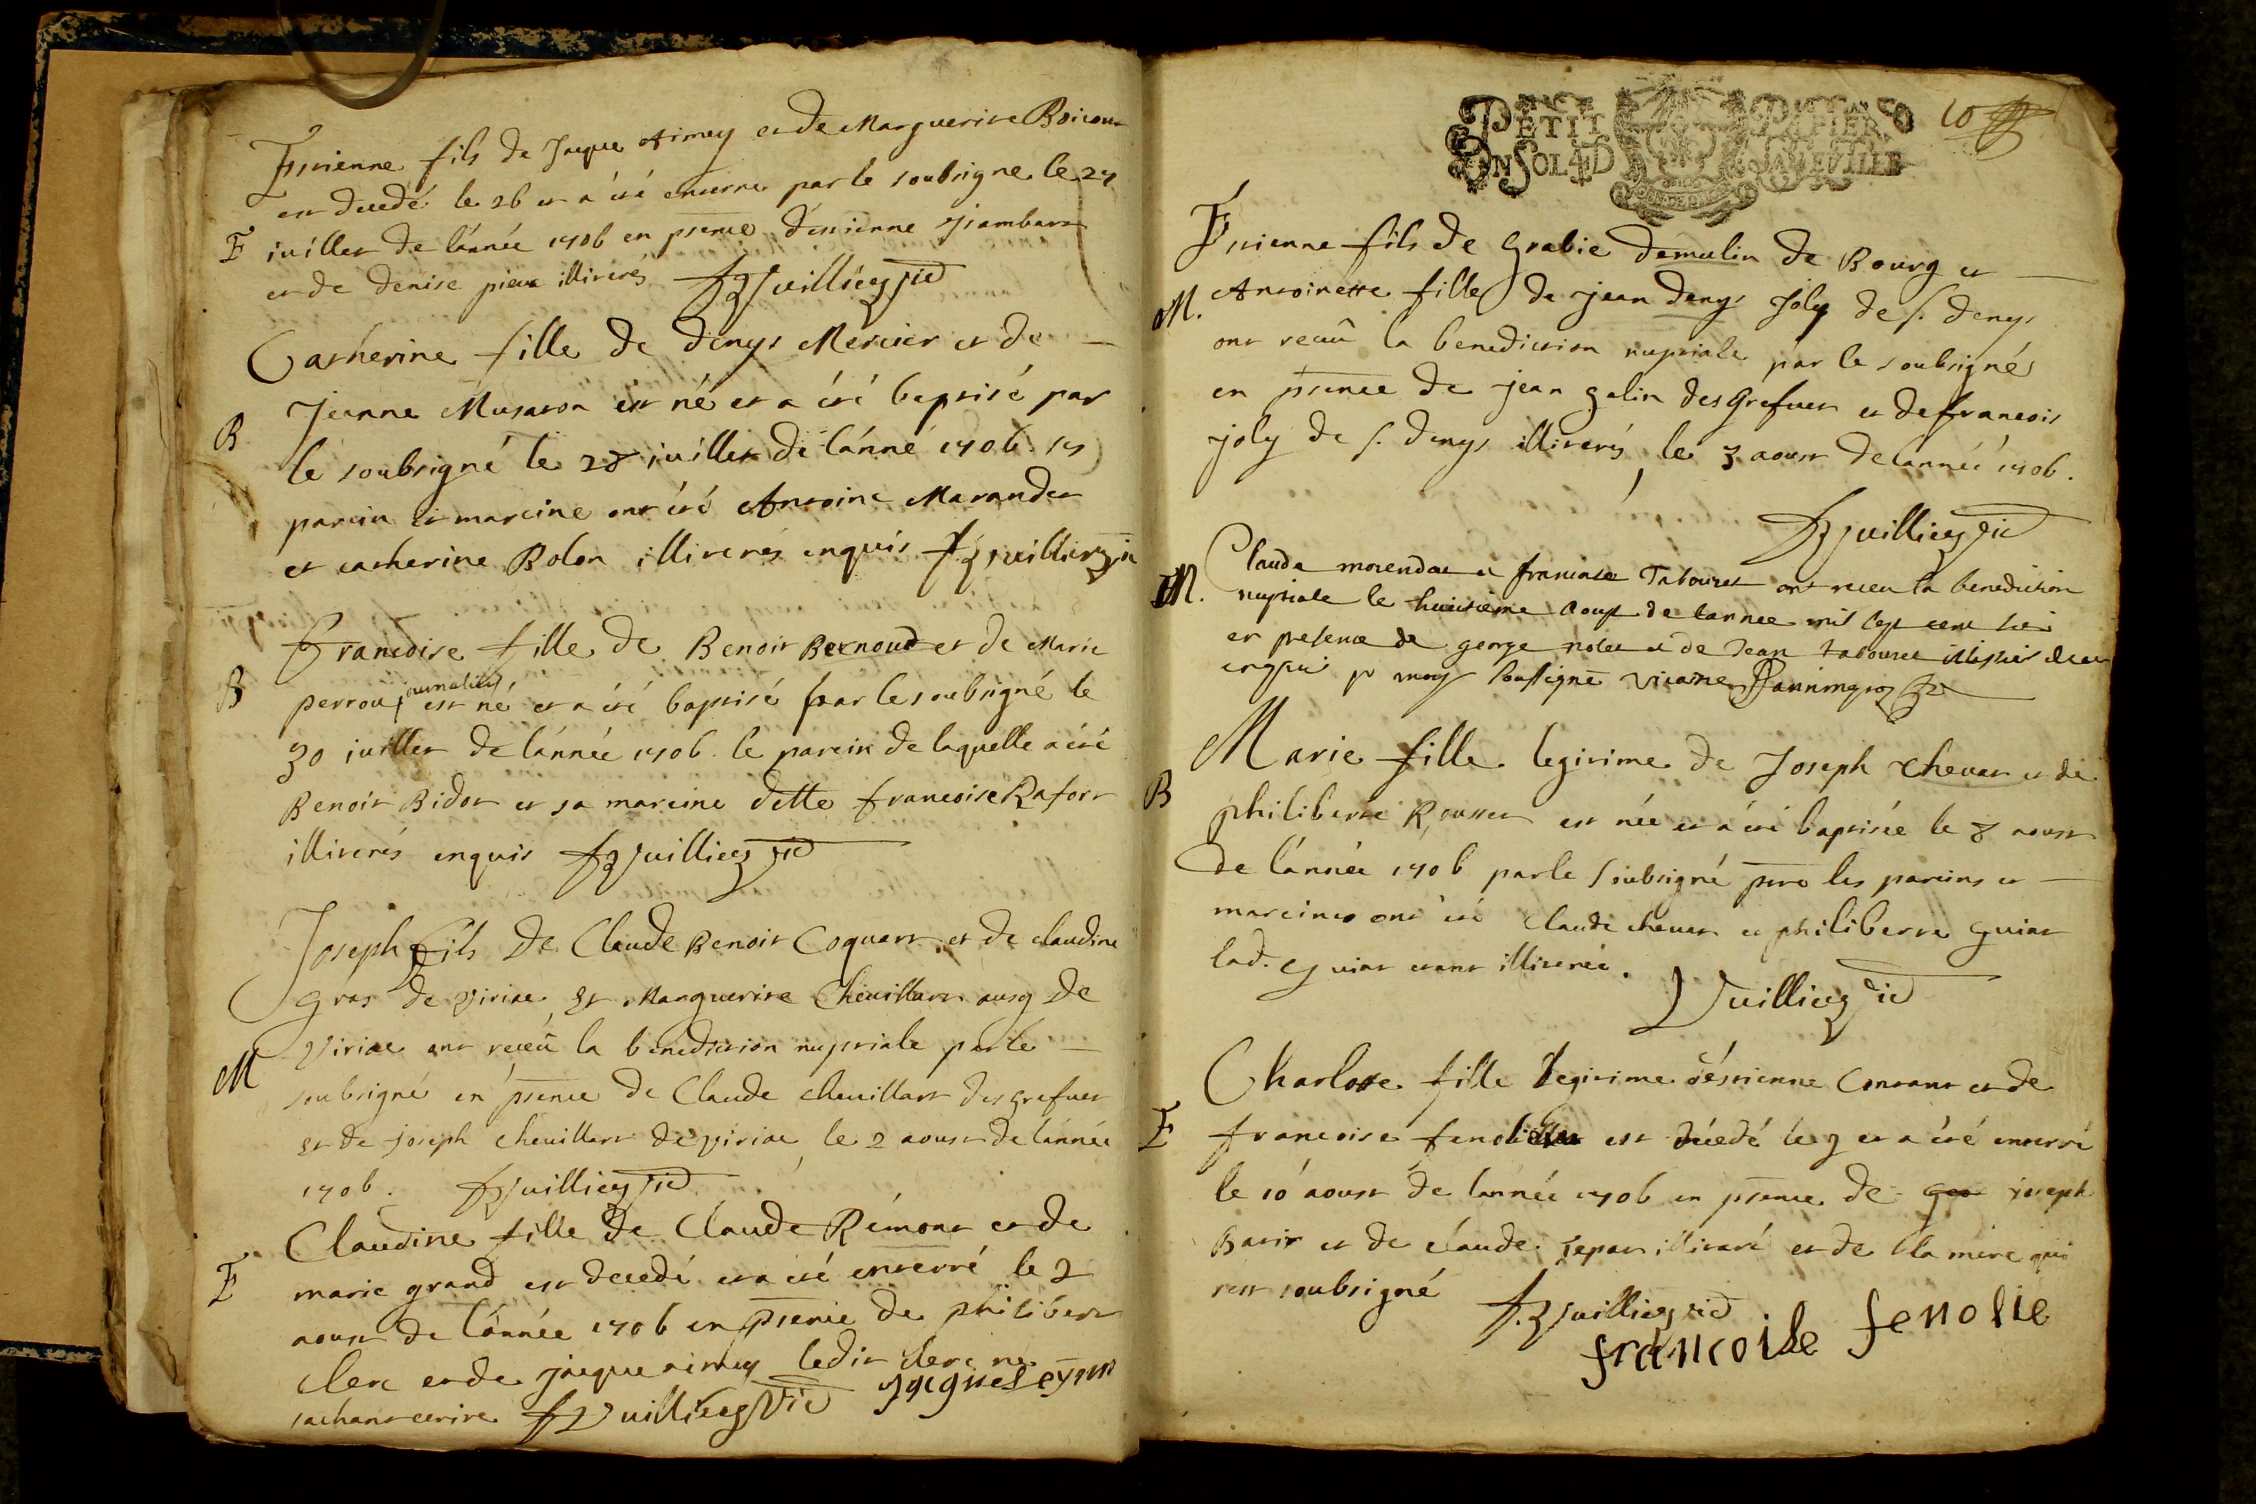 Estienne fils de Jaque Aimey et de Marguerite Boicour
est decedé le 26 et a été enterré par le soubsigné le 27
E juillet de l'année 1706 en psence d'estienne jambart
et de denise illiterés f Vuilliez vic
Catherine fille de denys Mercier et de
Jeanne Musaton est né et a été baptisé par
B le soubsigné le 28 juillet de l'anné 1706. ses
parein et mareine ont été Antoine Marandet
et catherine Bolon illiterés enquis f Vuilliez vic
francoise fille de Benoit Bernoud et de Marie
journalier
B perrou est né et a été baptisé par le soubsigné le
30 juillet de l'année 1706. le parein de laquelle a été
Benoit Bidot et sa mareine dette francoise Rafort
illiterés enquis f Vuilliez vic
Joseph fils de Claude Benoit Coquart et de claudine
gras de viriac et Marguerite Chevillart aussy de
M Viriac ont receü la benediction nuptiale par le
soubsigné en psence de Claude chevillart des grefuet
et de joseph chevillart de viriac le 2 aoust de l'année
1706. f Vuilliez vic
Claudine fille de Claude Rémont et de
E marie grand est decedé et a été enterré le 2
aoust de l'année 1706 en psence de philibert
clerc et de jaque aimey ledit clerc ne
sachant ecrire f Vuilliez Vic Jaques eymé
PETIT PAPIER
UN SOL 4 D LA FEUILLE
10
Estienne fils de grabie demulin de Bourg et
M. Antoinette fille de jean denys Joly de s. denys
ont receü la benediction nuptiale par le soubsignés
en psence de jean galin des grefuet et de francois
joly de s. denys illiterés, le 3 aoust de l'année 1706.
f Vuilliez vic
Claude morendat et francoise Tabouret ont receu la benediction
M. nuptiale le huictieme aoust de lannee mil sept cent six
en presence de george nolet et de Jean tabouret
enquis p moy soussigné vicaire
Marie fille legitime de Joseph chevat et de
B philiberte Rousset est née et a été baptisée le 8 aoust
de l'année 1706 par le soubsigné les pareins et
mareines ont été claude chevat et philiberte guiat
lad. guiat etant illiterée. Vuilliez vic
Charlotte fille legitime d'éstienne Constant et de
E francoise est décedé le 9 et a été enterré
le 10 aoust de l'année 1706 en psence de joseph
Barir et de claude illiteré et de la mere qui
s'est soubsigné f. Vuilliez vic
francoise fenolie